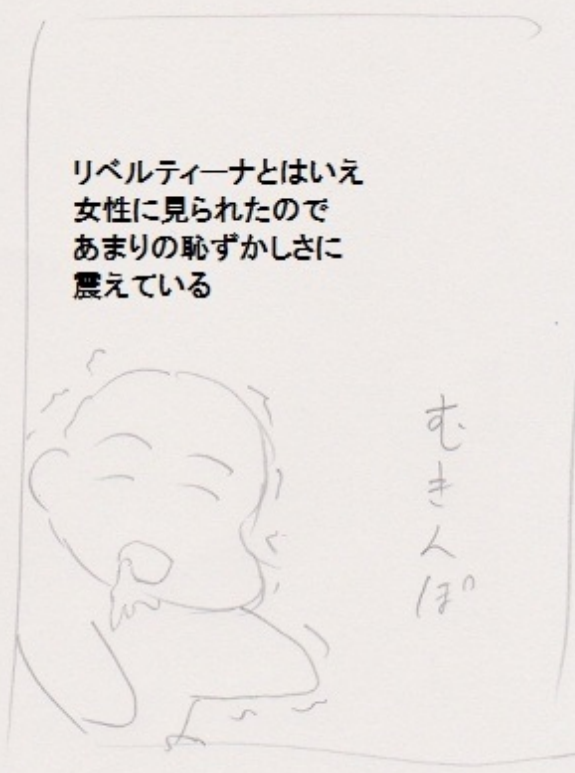 リベルティーナとはいえ
女性に見られたので
あまりの恥ずかしさに
震えている
むきんぽ